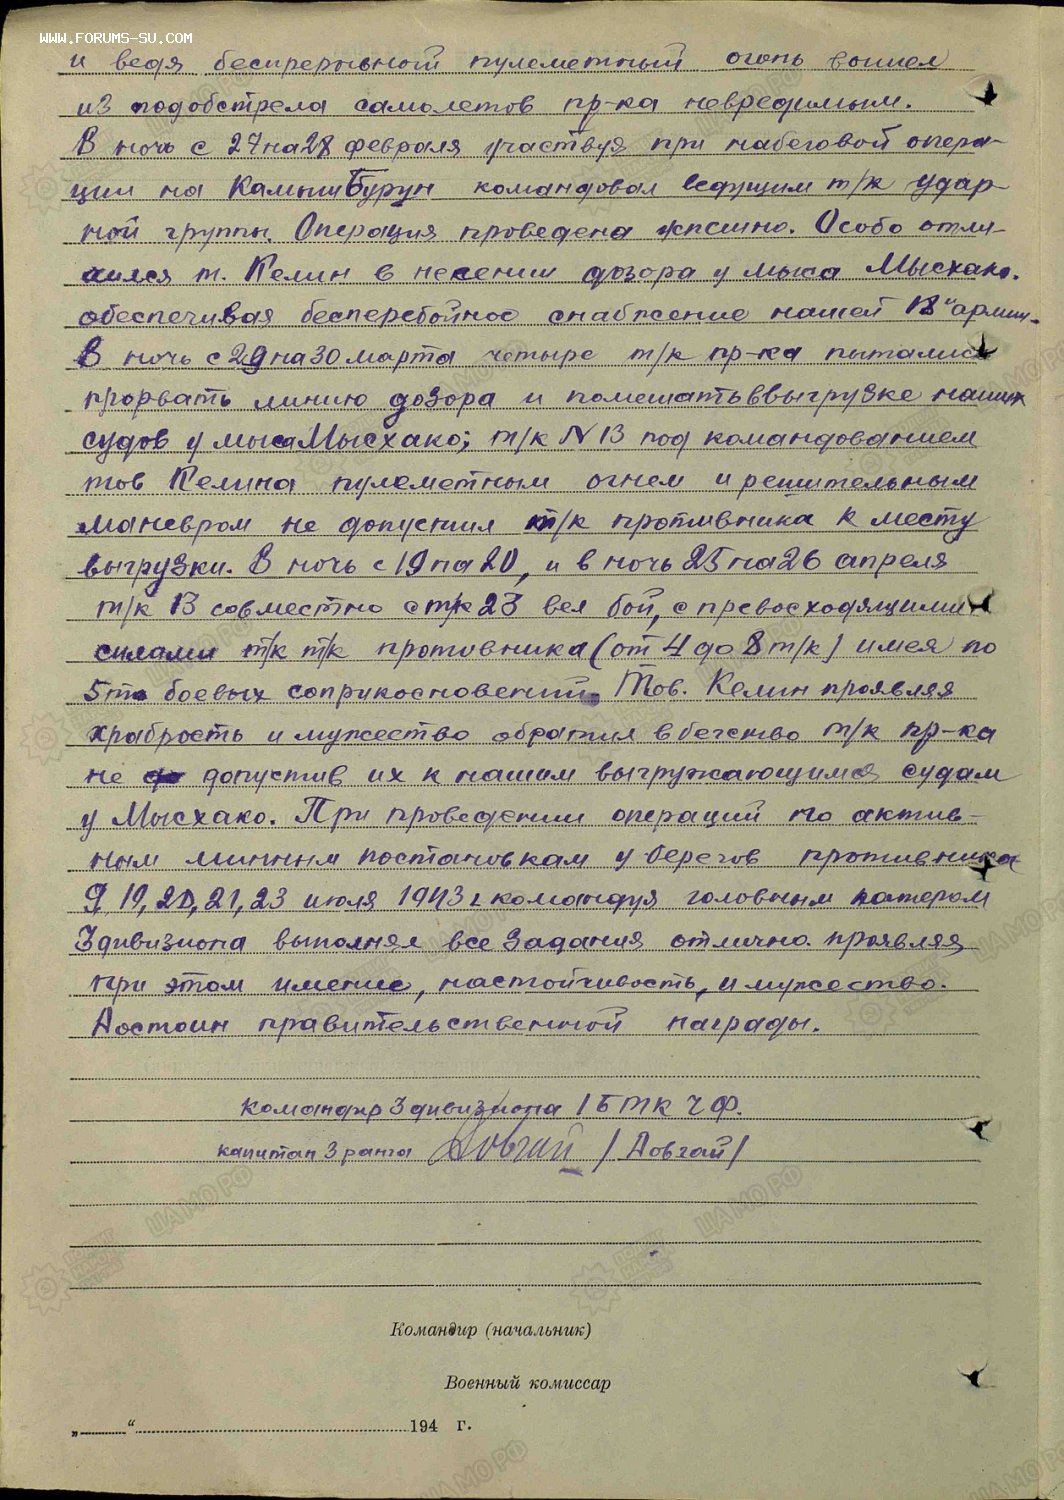 WWW.FORUMS-SU.COM
и ведя беспрерывный пулеметный огонь вышел
из подобстрела самолетов пр-ка невредимым.
В ночь с 27 на 28 февраля участвуя при набеговой опера-
ции на Камыш Бурун командовал ведущим т/к удар-
ной группы. Операция проведена успешно. Особо отли-
чился т. Келин в несении дозора у мыса Мысхако.
обеспечивая бесперебойное снабжение нашей 18"армии.
В ночь с 29 на 30 марта четыре т/к пр-ка пытались
прорвать линию дозора и помешать выгрузке наших
судов у мыса Мысхако; т/к N 13 под командованием
тов Келина пулеметным огнем и решительным
маневром не допустил т/к противника к месту
выгрузки. В ночь с 19 на 20, и в ночь 25 на 26 апреля
т/к 13 совместно с т/к 23 вел бой, с превосходящими
силами т/к т/к противника (от 4 до 8 т/к) имея по
5 боевых соприкосновений. Тов. Келин проявляя
храбрость и мужество обратил в бегство т/к пр-ка
не допустив их к нашим выгружающимся судам
у Мысхако. При проведении операций по актив-
ным минным постановкам у берегов противника
9, 19, 20, 21, 23 июля 1943 г командуя головным катером
3 дивизиона выполнял все задания отлично проявляя
при этом умение, настойчивость, и мужество.
Достоин правительственной награды.
Командир 3 дивизиона 1 БТК ЧФ.
капитан 3 ранга Довгай / Довгай /
Командир (начальник)
Военный комиссар
„ “ 194 г.